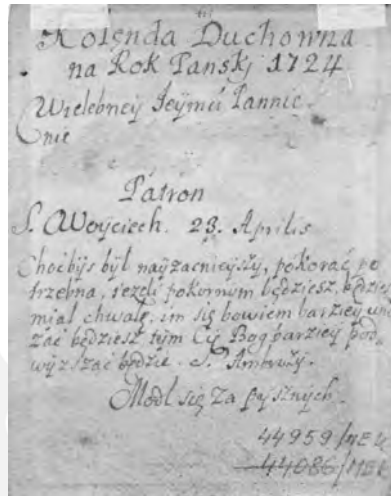 Kolenda Duchowna
na Rok Panski 1724
Wielebney Jeymć Pannie
Patron
S. Woyciech. 23. Aprilis
Choćbyś był nayzacnieyszy, pokorać po
trzebna, jezeli pokornym będziesz, będziesz
miał chwałę, im się bowiem barziey uni
zać będziesz tym Cię Bog barziey pod
wyzszać będzie. S. Ambroży.
Modl się za pysznych.
44959/ME
44086/ME